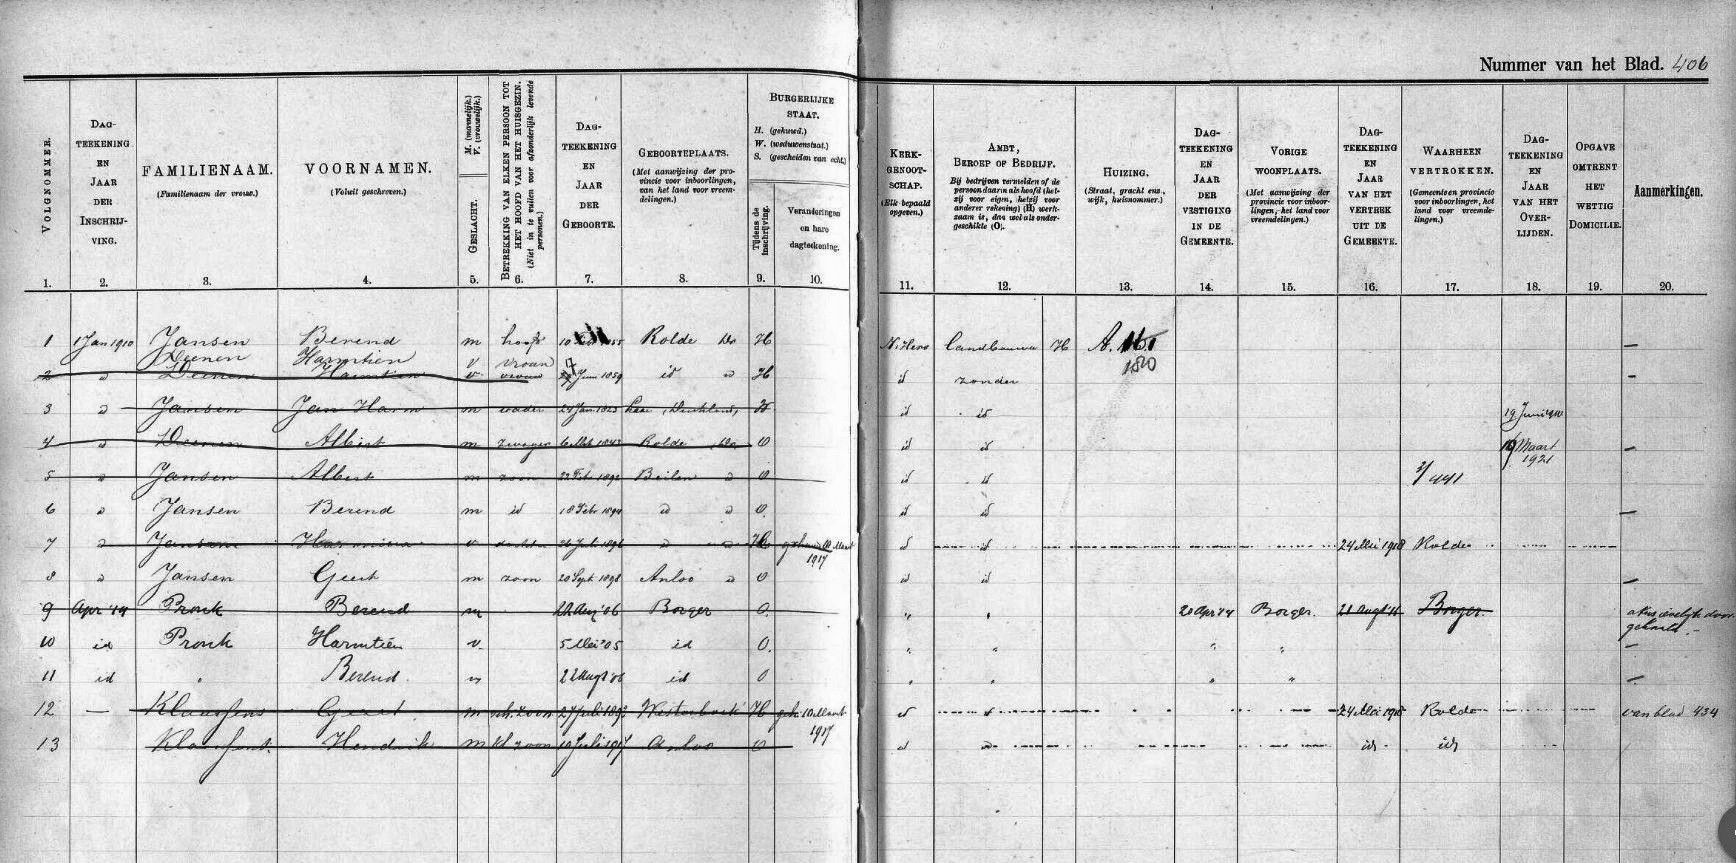 Nummer van het Blad. 406
VOLGNOMMER.
DAG-
TEEKENING
EN
JAAR
DER
INSCHRIJ-
VING.
FAMILIENAAM.
(Familienaam der vrouw.)
VOORNAMEN.
(Voluit geschreven.)
M. (mannelijk.)
V. (vrouwelijk.)
GESLACHT.
BETREKKING VAN ELKEN PERSOON TOT
HET HOOFD VAN HET HUISGEZIN.
(Niet in te vullen voor afzonderlijk levende
personen.)
DAG-
TEEKENING
EN
JAAR
DER
GEBOORTE.
GEBOORTEPLAATS.
(Met aanwijzing der pro-
vincie voor inboorlingen,
van het land voor vreem-
delingen.)
BURGERLIJKE
STAAT.
H. (gehuwd.)
W. (weduwenstaat.)
S. (gescheiden van echt.)
Tijdens de
inschrijving.
Veranderingen
en hare
dagteekening.
KERK-
GENOOT-
SCHAP.
(Elk bepaald
opgeven.)
AMBT,
BEROEP OF BEDRIJF.
Bij bedrijven vermelden of de
persoon daarin als hoofd (het-
zij voor eigen, hetzij voor
anderer rekening) (H) werk-
zaam is, dan wel als onder-
geschikte (O).
HUIZING.
(Straat, gracht enz.,
wijk, huisnommer.)
DAG-
TEEKENING
EN
JAAR
DER
VESTIGING
IN DE
GEMEENTE.
VORIGE
WOONPLAATS.
(Met aanwijzing der
provincie voor inboor-
lingen, het land voor
vreemdelingen.)
DAG-
TEEKENING
EN
JAAR
VAN HET
VERTREK
UIT DE
GEMEENTE.
WAARHEEN
VERTROKKEN.
(Gemeente en provincie
voor inboorlingen, het
land voor vreemde-
lingen.)
DAG-
TEEKENING
EN
JAAR
VAN HET
OVER-
LIJDEN.
OPGAVE
OMTRENT
HET
WETTIG
DOMICILIE.
Aanmerkingen.
1. 2. 3. 4. 5. 6. 7. 8. 9. 10. 11. 12. 13. 14. 15. 16. 17. 18. 19. 20.
1 1 Jan 1910 Jansen Berend m hoofd 10 Rolde Do H N. Herv Landbouwer H A.
Deenen Harmtien v vrouw 180
2 d Deenen Harmtien v vrouw Juni 1859 id d H id zonder
3 d Jansen Jan Harm m vader 24 Jan 1823 W id id 19 Juni 1910
4 d Deenen Albert m zwager 1843 Rolde Do O id id 19 Maart
1921
5 d Jansen Albert m zoon 22 Feb 1892 Beilen d O id id 2/441
6 d Jansen Berend m id 18 Febr 1894 d d O. id id
7 d Jansen v dochter 26 Juli 1896 d d H gehuwd 10 Maart id id 24 Mei 1918 Rolde
1917
8 d Jansen Geert m zoon 20 Sept 1898 Anloo d O id id
9 Apr '14 Pronk Berend m 22 Aug '06 Borger O. " " 20 Apr '14 Borger. 21 Aug '14 Borger. abusievelijk door
gehaald. -
10 id Pronk Harmtien v. 5 Mei '05 id O. " " " "
11 id " Berend. m 22 Aug '06 id O " " " "
12 — Klaassens Geert m sch. zoon 27 Juli Westerbork H geh. 10 Maart id id 24 Mei 1918 Rolde van blad 434
1917
13 Klaassens Hendrik m kl. zoon 19 Juli 1917 Anloo O id id id